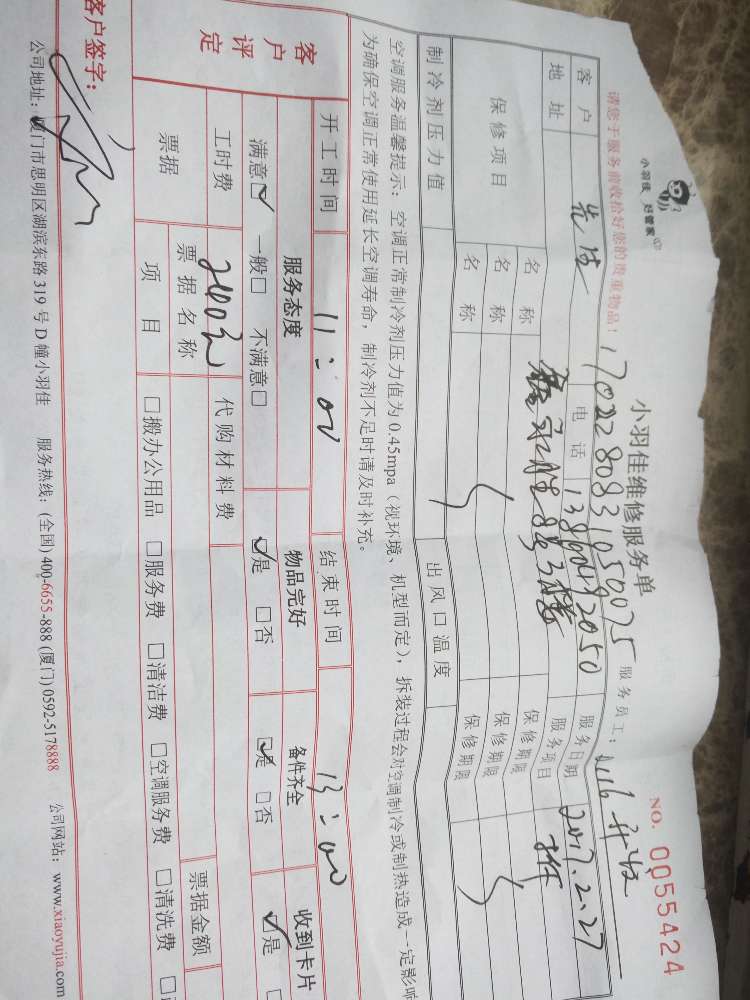 小羽佳 好管家
小羽佳维修服务单
NO. 0055424
请您于服务前收拾好您的贵重物品！
服务员工：
客户 电话 服务日期 2017.2.27
地址 服务项目
保修项目 名称 保修期限
名称 保修期限
名称 保修期限
制冷剂压力值 出风口温度
空调服务温馨提示：空调正常制冷剂压力值为0.45mpa（视环境、机型而定），拆装过程会对空调制冷或制热造成一定影响
为确保空调正常使用延长空调寿命，制冷剂不足时请及时补充。
开工时间 11:00 结束时间 13:00
客户评定 服务态度 物品完好 备件齐全 收到卡片
满意☑ 一般□ 不满意□ ☑是 □否 ☑是 □否 ☑是
工时费 200元 代购材料费
票据 票据名称 票据金额
项目 □搬办公用品 □服务费 □清洁费 □空调服务费 □清洗费
客户签字：
公司地址：厦门市思明区湖滨东路319号D幢小羽佳 服务热线：(全国) 400-6655-888 (厦门) 0592-5178888 公司网站：www.xiaoyujia.com